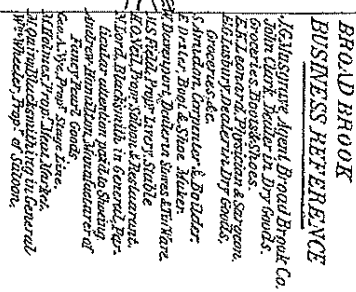 BROAD BROOK
BUSINESS REFERENCE
J.G. Musgrave, Agent Broad Brook Co.
John Clark, Dealer in Dry Goods,
Groceries, Boots & Shoes.
E.K. Leonard, Physician & Surgeon.
Dealer in Dry Goods,
Groceries &c.
S. Arnold, Carpenter & Builder.
E. Drier, Boot & Shoe Maker.
W. Davenport, Dealer in Stoves & Tin Ware.
Prop'r Livery Stable
H.O. Neil, Prop'r Saloon & Restaurant.
M. Lord, Blacksmith in General. Par-
ticular attention paid to Shoeing
Andrew Hamilton, Manufacturer of
Fancy Pearl Goods
Geo. A. Prop'r Stage Line.
M. Holmes, Prop'r Meat Market.
M. Quinn, Blacksmithing in General
Wm. Wheeler, Prop'r of Saloon.